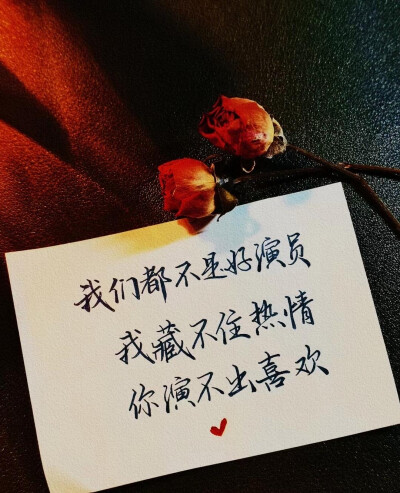 我们都不是好演员
我藏不住热情
你演不出喜欢